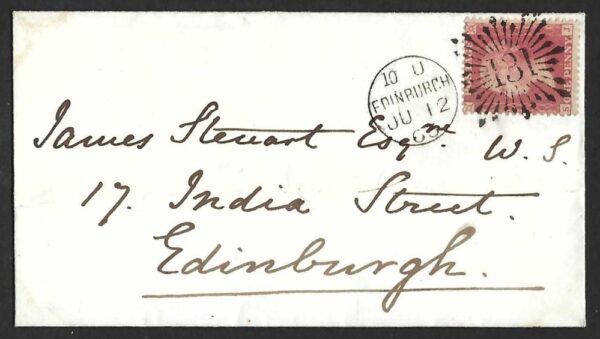 10 U
EDINBURGH
JU 12
131
PENNY
James Stewart Esqre W.S.
17. India Street.
Edinburgh.